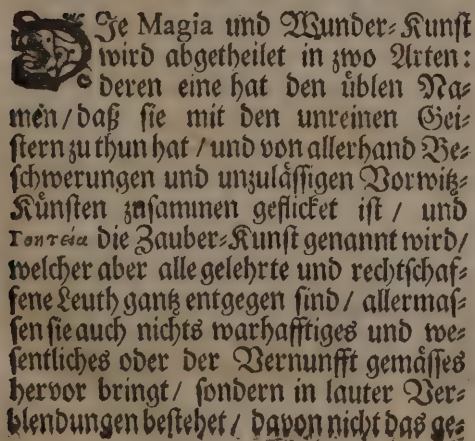 DJe Magia und Wunder-Kunst
wird abgetheilet in zwo Arten:
deren eine hat den üblen Na-
men / daß sie mit den unreinen Gei-
stern zu thun hat / und von allerhand Be-
schwerungen und unzulässigen Vorwitz-
Künsten zusammen geflicket ist / und
Γοητεία die Zauber-Kunst genannt wird /
welcher aber alle gelehrte und rechtschaf-
fene Leuth gantz entgegen sind / allermas-
sen sie auch nichts warhafftiges und we-
sentliches oder der Vernunfft gemässes
hervor bringt / sondern in lauter Ver-
blendungen bestehet / davon nicht das ge-